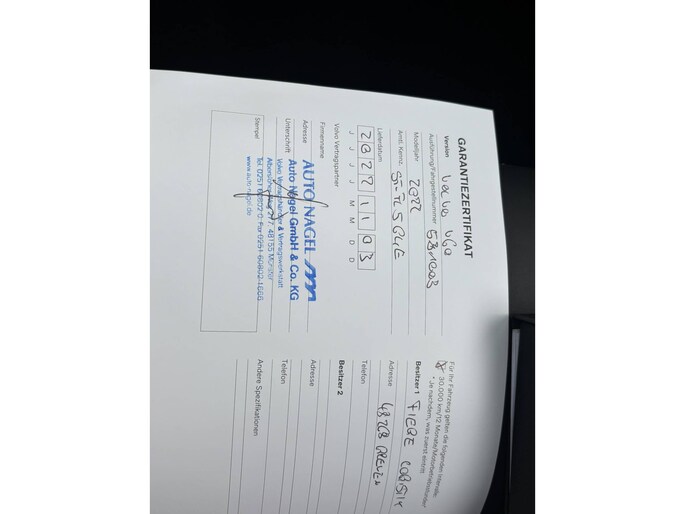 GARANTIEZERTIFIKAT
Version Volvo V60
Ausführung/Fahrgestellnummer
Modelljahr 2022
Amtl. Kennz.
Lieferdatum
2 0 2 2 1 1 0 3
J J J J M M D D
Volvo Vertragspartner
Firmenname
AUTO NAGEL
Adresse
Auto Nagel GmbH & Co. KG
Unterschrift
Volvo Vertragshändler & Vertragswerkstatt
48155 Münster
Tel. 0251 60802-0 Fax 0251-60802-1666
www.auto-nagel.de
Stempel
Für Ihr Fahrzeug gelten die folgenden Intervalle:
30.000 km/12 Monate/Motorbetriebsstunden*
* Je nachdem, was zuerst eintritt
Besitzer 1
Adresse 48268 Greven
Telefon
Besitzer 2
Adresse
Telefon
Andere Spezifikationen